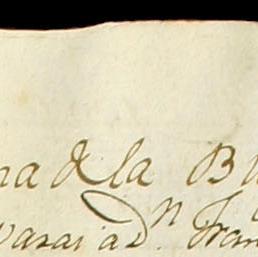 na de la B
varai a Dn. Fran